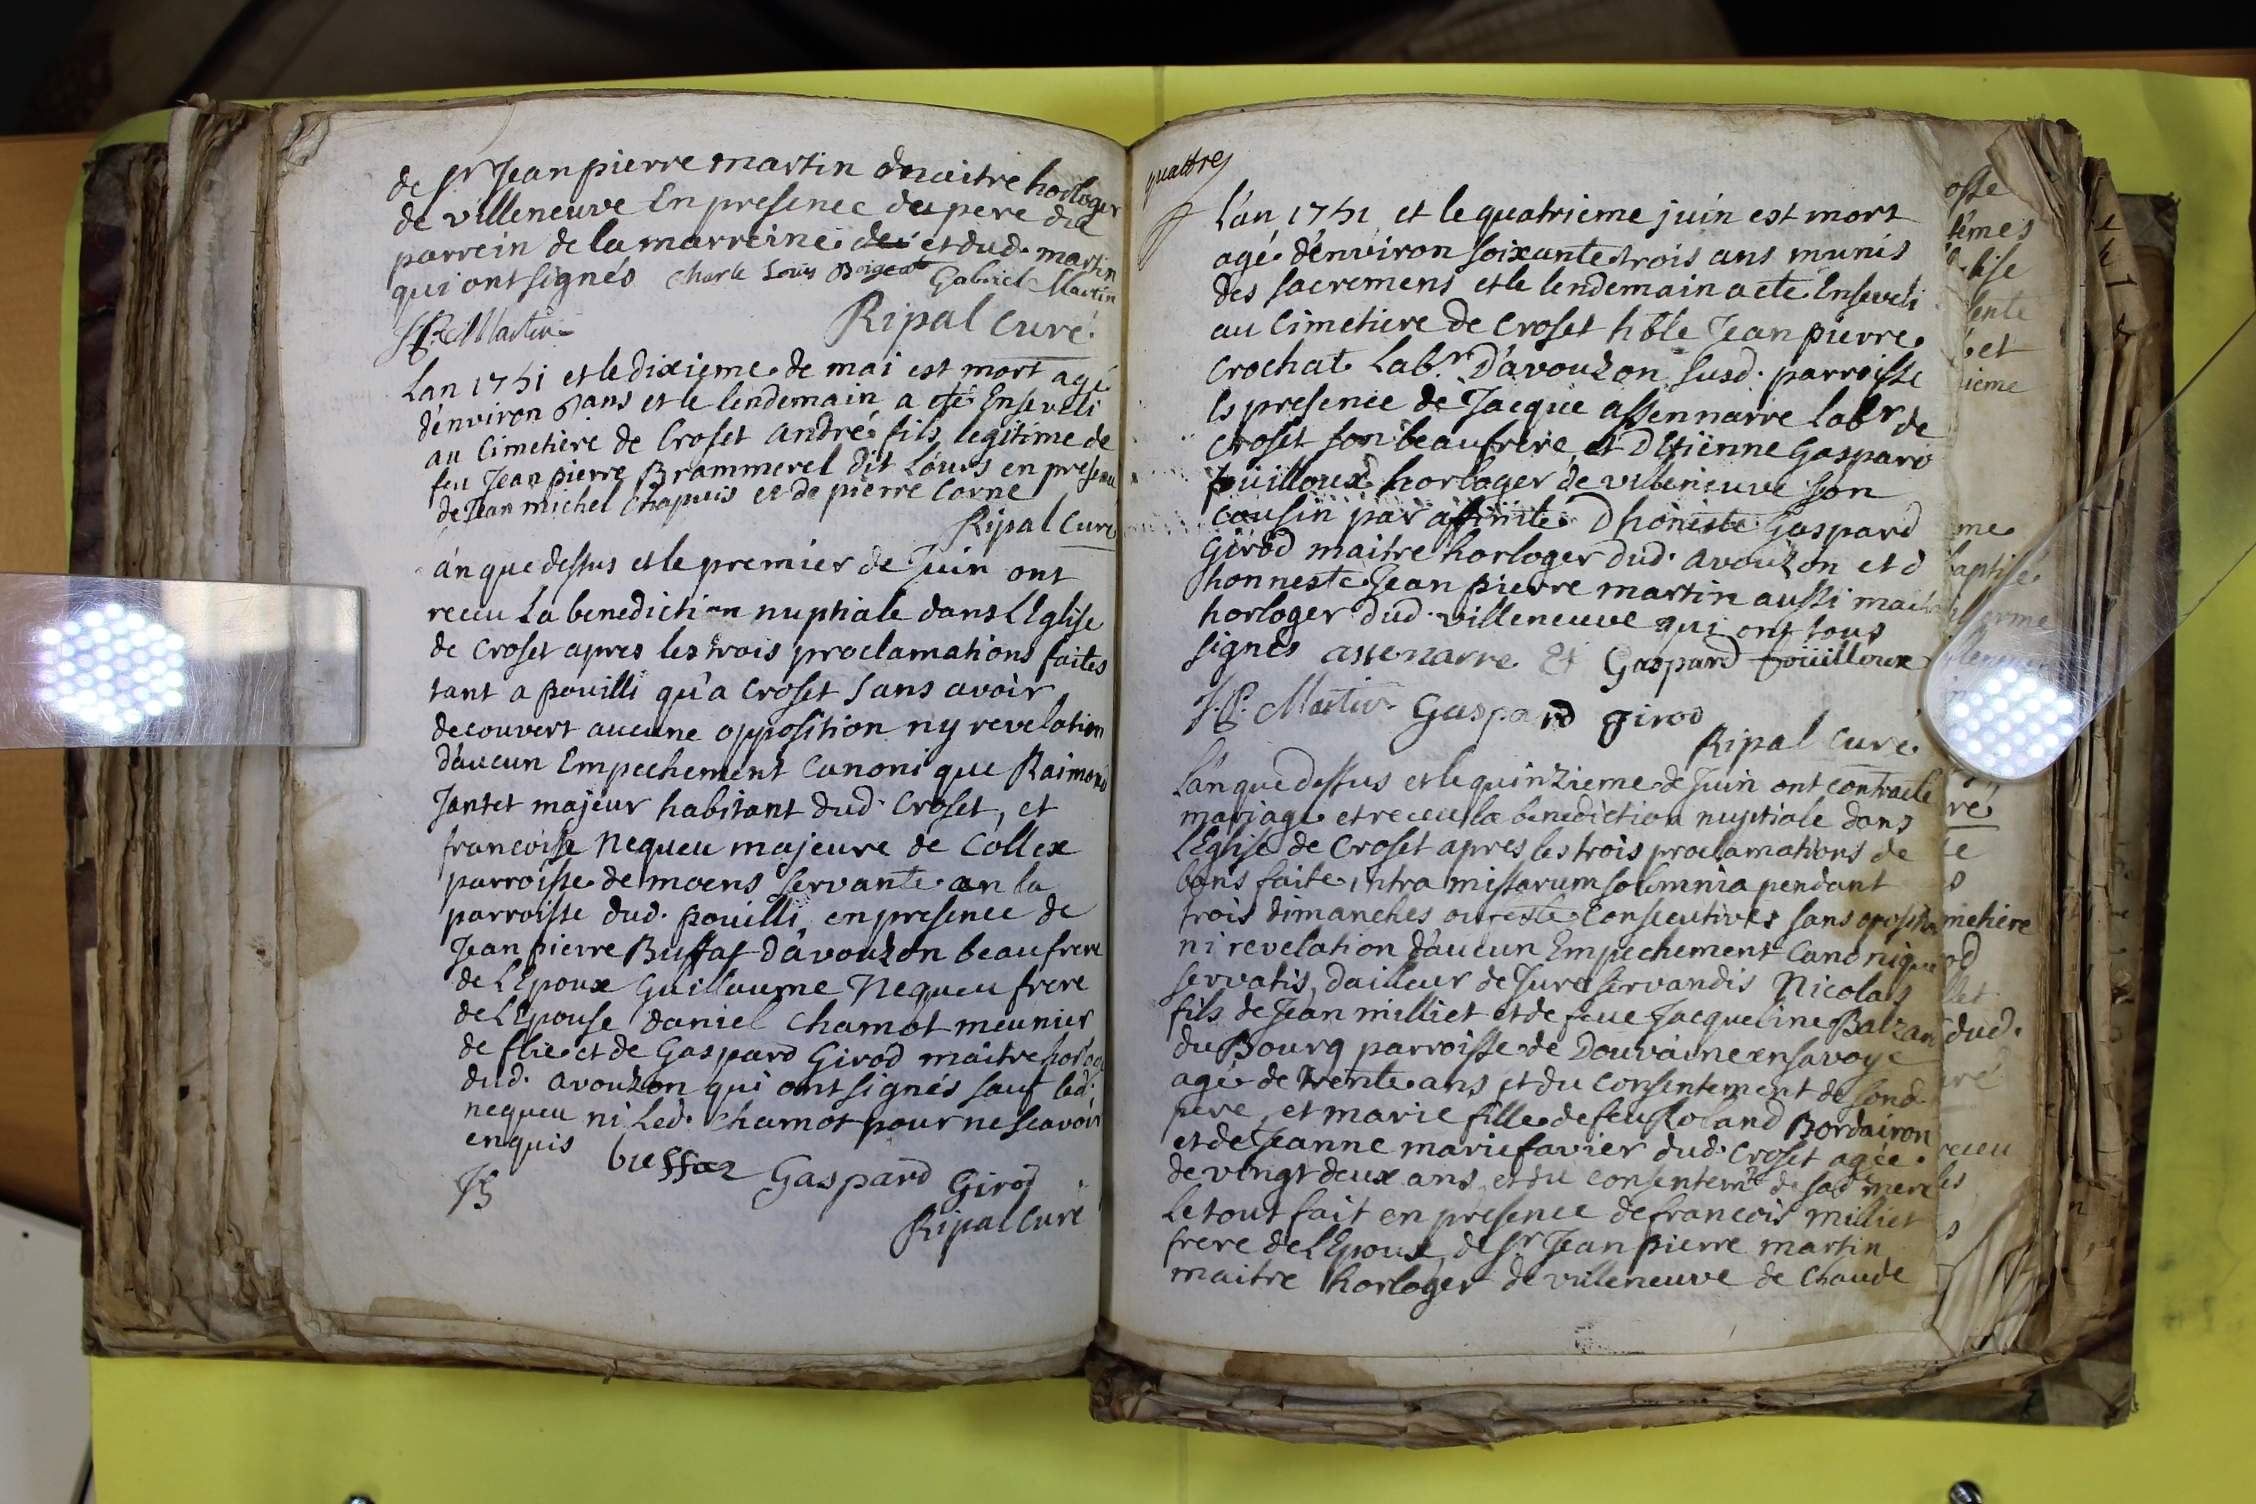 de Sr Jean pierre martin maitre horloger
de villeneuve En presence du pere du
parrein de la marreine et dud. martin
qui ont signés Charle Louis Gabriel Martin
J.P. Martin Ripal curé.
Lan 1751 et le dixieme de mai est mort agé
d'environ ans et le lendemain a eté Enseveli
au Cimetiere de Croset André fils legitime de
feu Jean pierre Brammerel dit Lours en presence
de Jean michel Chapuis et de pierre Corne
Ripal Curé
án que dessus et le premier de Juin ont
receu La benediction nuptiale dans L'Eglise
de Croset apres les trois proclamations faites
tant a pouilli qu'a Croset sans avoir
decouvert aucune opposition ny revelation
d'aucun Empechement Canonique Raimond
Jantet majeur habitant dud. Croset, et
francoise Nequeu majeure de Collex
parroisse de moens servante en la
parroisse dud. pouilli en presence de
Jean pierre Buffat d'avouzon beaufrere
de L'Epoux Guillaume Nequeu frere
de L'Epouse daniel Chamot meunier
de flie et de Gaspard Girod maitre horloger
dud. avouzon qui ont signés sauf led.
nequeu ni Led. Chamot pour ne scavoir
enquis buffaz Gaspard Girod
Ripal Curé
quattre
L'an 1751 et le quatrieme juin est mort
agé d'environ soixante trois ans munis
des sacremens et le lendemain a eté Enseveli
au Cimetiere de Croset hble Jean pierre
Crochat Labr. D'avouzon susd. parroisse
Es presence de Jacque assennarre labr de
Croset son beaufrere et D'Etienne Gaspard
fouilloux horloger de villeneuve son
cousin par affinité D'honeste Gaspard
Girod maitre horloger dud. avouzon et d
honneste Jean pierre martin aussi maitre
horloger dud. villeneuve qui ont tous
signés assenarre Et Gaspard foüilloux
J.P. Martin Gaspard Girod
Ripal curé.
L'an que dessus et le quinzieme de Juin ont contracté
mariage et receu la benediction nuptiale dans
L'Eglise de Croset apres les trois proclamations de
bans faite intra missarum solemnia pendant
trois dimanches ou feste Consecutives sans
ni revelation d'aucun Empechement Canonique
servatis d'ailleur de Jure servandis Nicolas
fils de Jean milliet et de feue Jacqueline Balzar
du Bourg parroisse de Douvaine en savoye
agé de trente ans et du consentement de sond
pere, et marie fille de feu Roland Bordairon
et de Jeanne marie favier dud. Croset agée
de vingt deux ans et du consentemt de sad mere
Le tout fait en presence de francois milliet
frere de l'Epoux, de Sr Jean pierre martin
maitre horloger de villeneuve de Claude